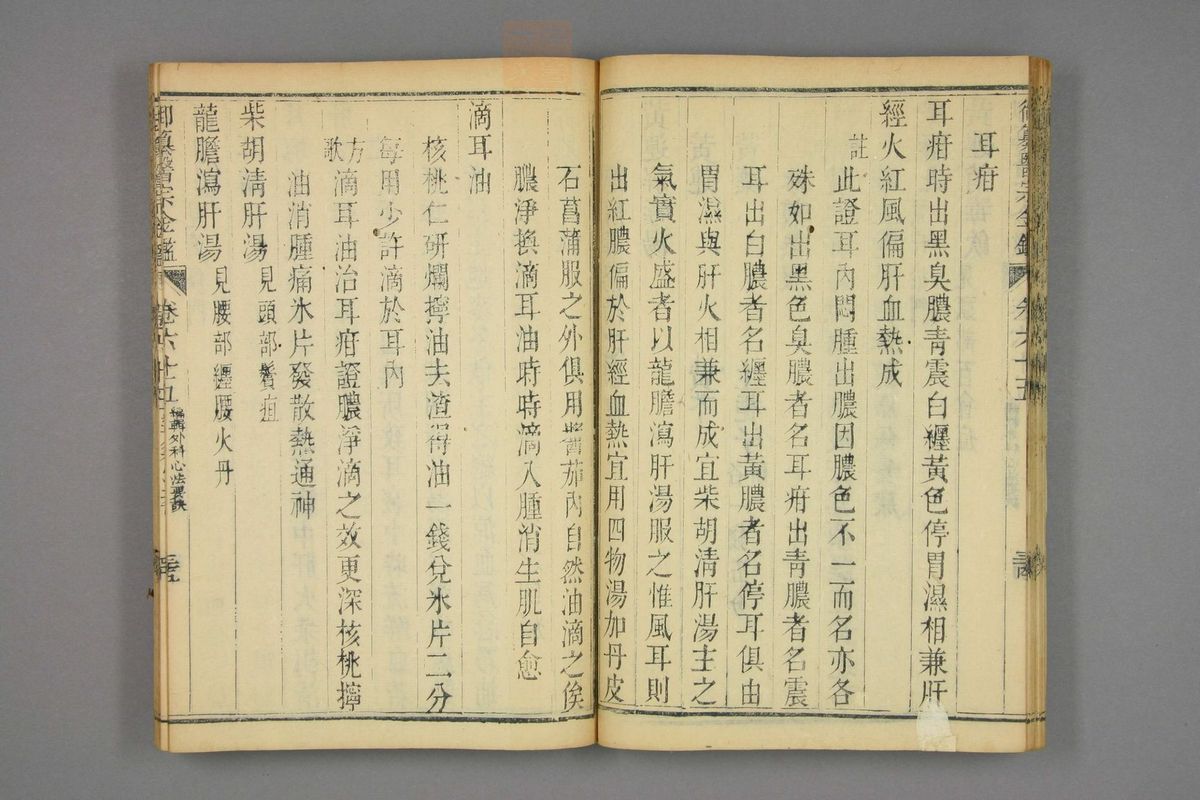 耳疳
耳疳時出黑臭膿青震白纏黃色停胃濕相兼肝
經火紅風偏肝血熱成
註
此證耳內悶腫出膿因膿色不一而名亦各
殊如出黑色臭膿者名耳疳出青膿者名震
耳出白膿者名纏耳出黃膿者名停耳俱由
胃濕與肝火相兼而成宜柴胡清肝湯主之
氣實火盛者以龍膽瀉肝湯服之惟風耳則
出紅膿偏於肝經血熱宜用四物湯加丹皮
石菖蒲服之外俱用醬茄內自然油滴之俟
膿淨換滴耳油時時滴入腫消生肌自愈
滴耳油
核桃仁研爛擰油去渣得油一錢兌氷片二分
每用少許滴於耳內
方歌
滴耳油治耳疳證膿淨滴之效更深核桃擰
油消腫痛氷片發散熱通神
柴胡清肝湯 見頭部鬢疽
龍膽瀉肝湯 見腰部纏腰火丹
御纂醫宗金鑑 卷六十五 編輯外科心法要訣